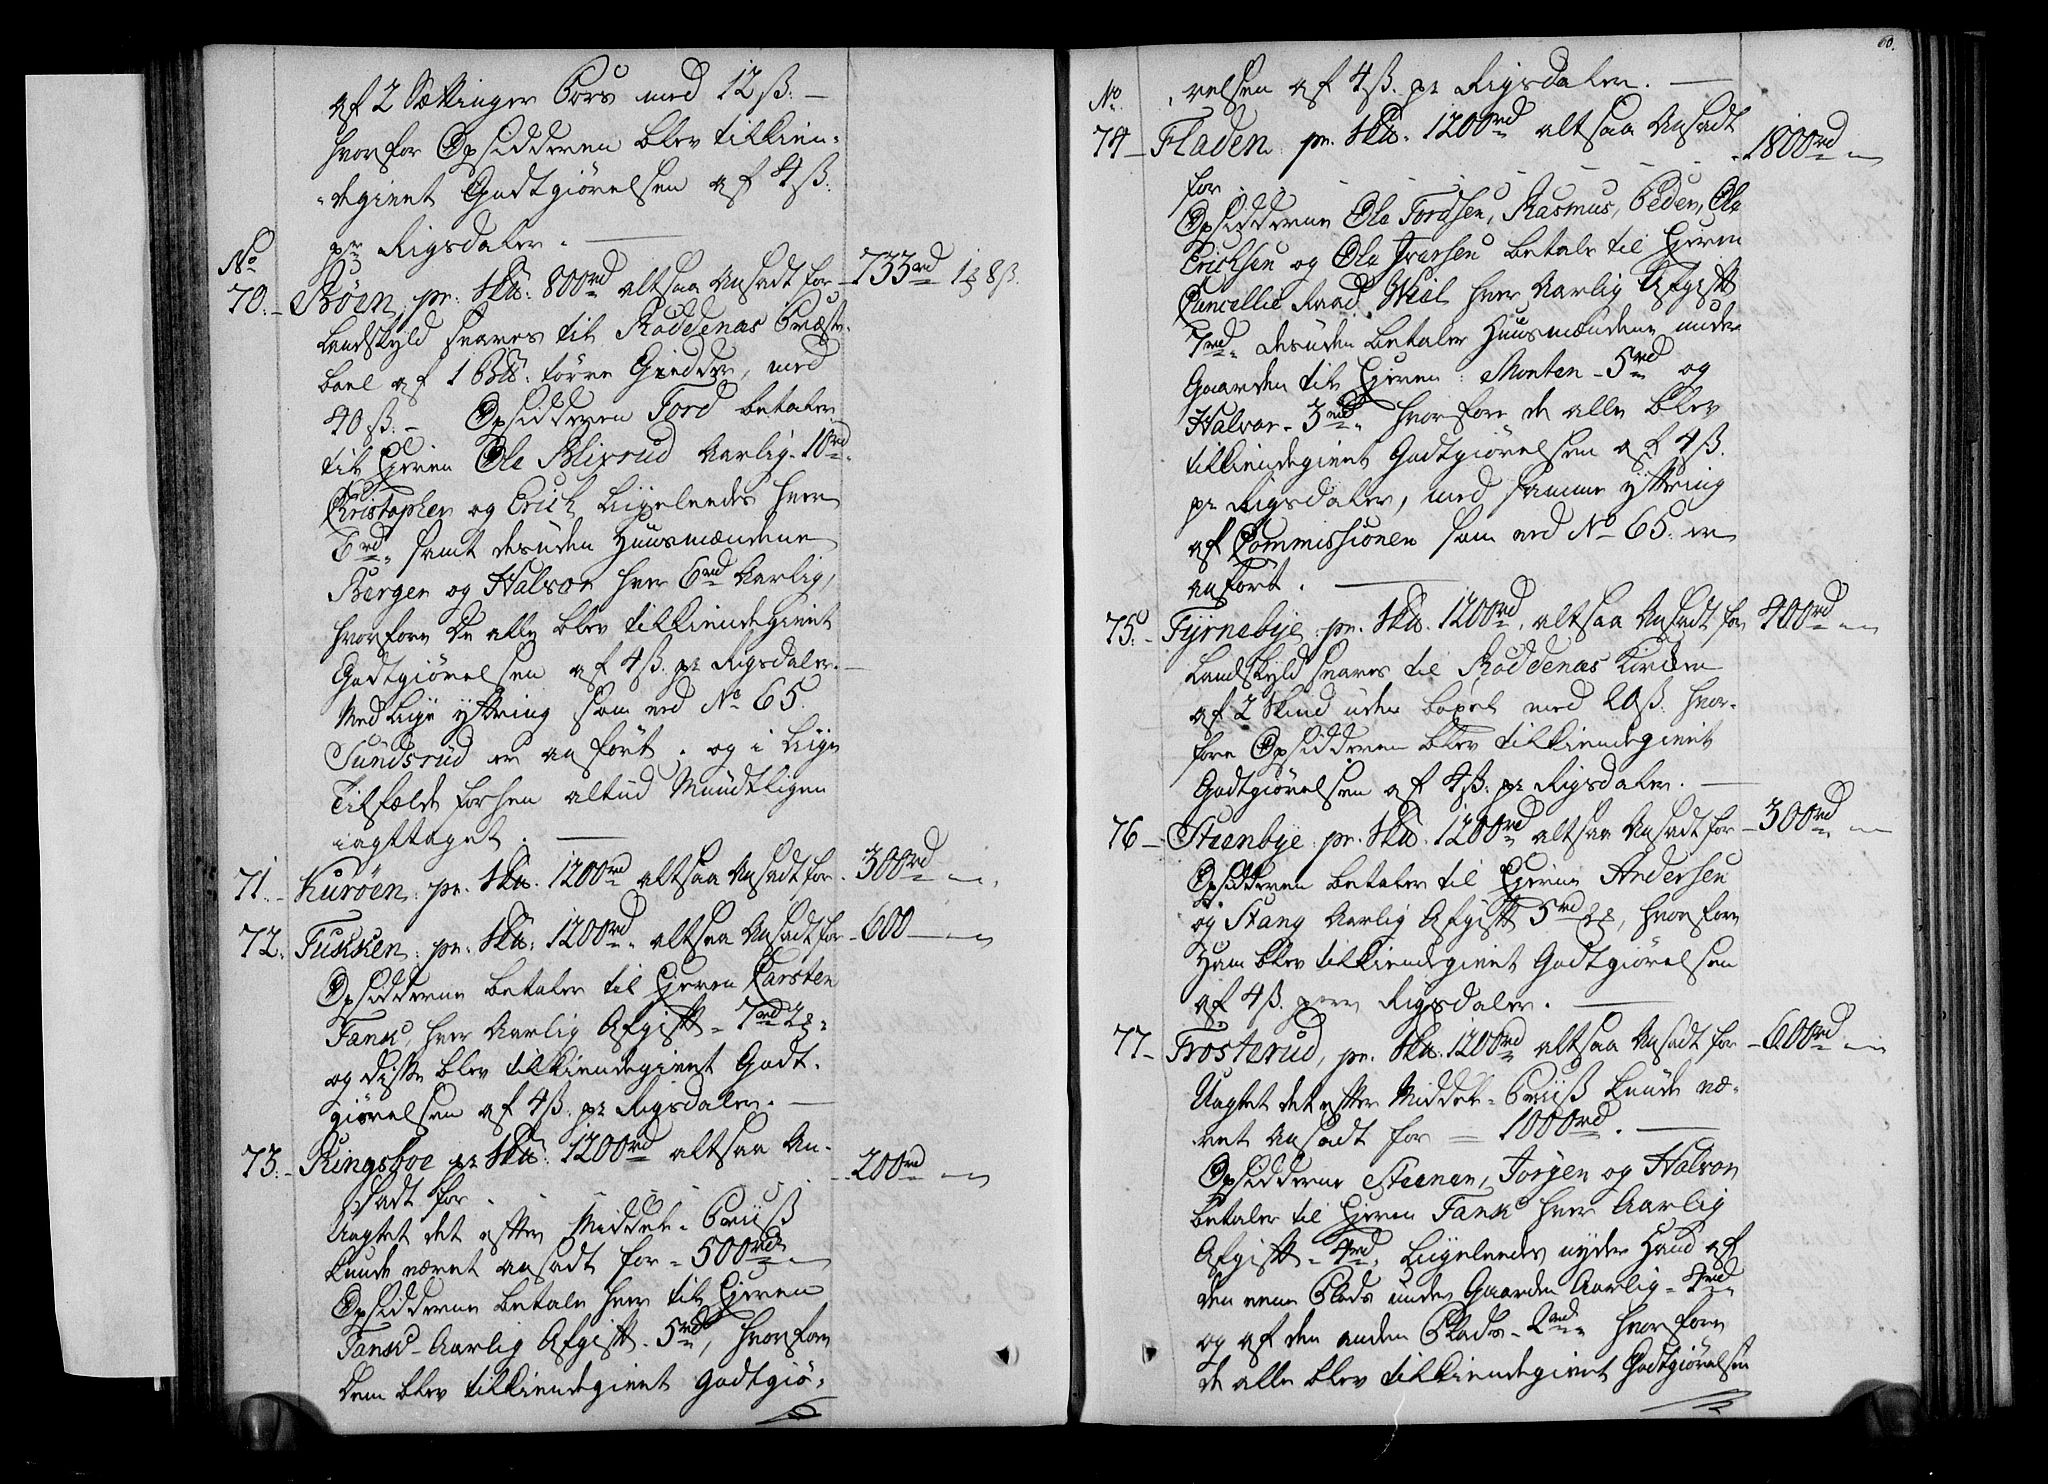 af 2 Sættinger Kors med 12 ß. —
hvorfor Opsidderen blev tilkien-
degivet Godtgiørelsen af 4 ß.
pr Rigsdaler. —
No
70. – Bøen, pr. Skd. 800rd altsaa Ansadt for – 733rd 1 8ß.
Landskyld svares til Røddenæs Præste-
boel af 1 tørre Giedder, med
40 ß. – Opsidderen Tord betaler
til Ejeren Ole Blixrud Aarlig – 10rd.
Christopher og Erich Liigeleedes hver
6rd. samt desuden Huusmændene
Børger og Halvor hver 6rd Aarlig,
hvorfore De alle blev tilkiendegivet
Godtgiørelsen af 4 ß. pr Rigsdaler. —
Med liige yttring som ved No 65.
Sundsrud er anført. og i liige
Tilfælde forhen altiid Mundtligen
iagttaget. —
71. – Kurøen. pr. Skd. 1200rd altsaa Ansadt for. 300rd – „
72. Tukken. pr. Skd. 1200rd. altsaa Ansadt for – 600 — „
Opsidderne betaler til Eieren Carsten
Tank, hver Aarlig Afgift – 7rd 2
og disse blev tilkiendegivet Godt-
giørelsen af 4 ß. pr Rigsdaler. —
73. – Kingsboe pr Skd. 1200rd altsaa An-
sadt for – – – – – 200rd „
Uagtet det efter Middel-Priiß
kunde været ansadt for – 500rd
Opsidderne betale hver til Eieren
Tank – Aarlig Afgift – 5rd, hvorfore
dem blev tilkiendegivet Godtgiø-
60.
No relsen af 4 ß. pr Rigsdaler. —
74 – Fladen. pr. Skd. 1200rd altsaa Ansadt
for – – – – 1800rd „
Opsidderne Ole Tordsen, Rasmus, Peder, Ole
Erichsen og Ole Iversen betale til Eieren
Cancellie Raad Wiel hver Aarlig Afgift
7rd. desuden betaler Huusmændene under
Gaarden til Eieren: Morten – 5rd og
Halvor – 3rd. hvorfore de alle blev
tilkiendegivet Godtgiørelsen af 4 ß.
pr Rigsdaler, med samme yttring
af Commissionen som ved No 65. er
anført. —
75. – Fyrnebye. pr. Skd. 1200rd. altsaa Ansadt for 400rd „
Landskyld svares til Røddenæs Kirke
af 2 Skind uden boxel med 20 ß. hvor-
fore Opsidderen blev tilkiendegivet
Godtgiørelsen af 4 ß. pr Rigsdaler. —
76 – Steenbye. pr. Skd. 1200rd altsaa Ansadt for – 300rd „
Opsidderen betaler til Eierne Andersen
og Stang Aarlig Afgift 5rd 2, hvorfore
Ham blev tilkiendegivet Godtgiørelsen
af 4 ß. pr Rigsdaler. —
77 – Trosterud, pr. Skd. 1200rd altsaa Ansadt for – 600rd „
Uagtet det efter Middel-Priiß kunde væ-
ret ansadt for = 1000rd. —
Opsidderne Steener, Jørgen og Halvor,
betaler til Eieren Tank hver Aarlig
Afgift – 4rd. Liigeleedes nyder Hand af
den eene Plads under Gaarden Aarlig – 4rd
og af den anden Plads – 2rd hvorfore
de alle blev tilkiendegivet Godtgiørelsen